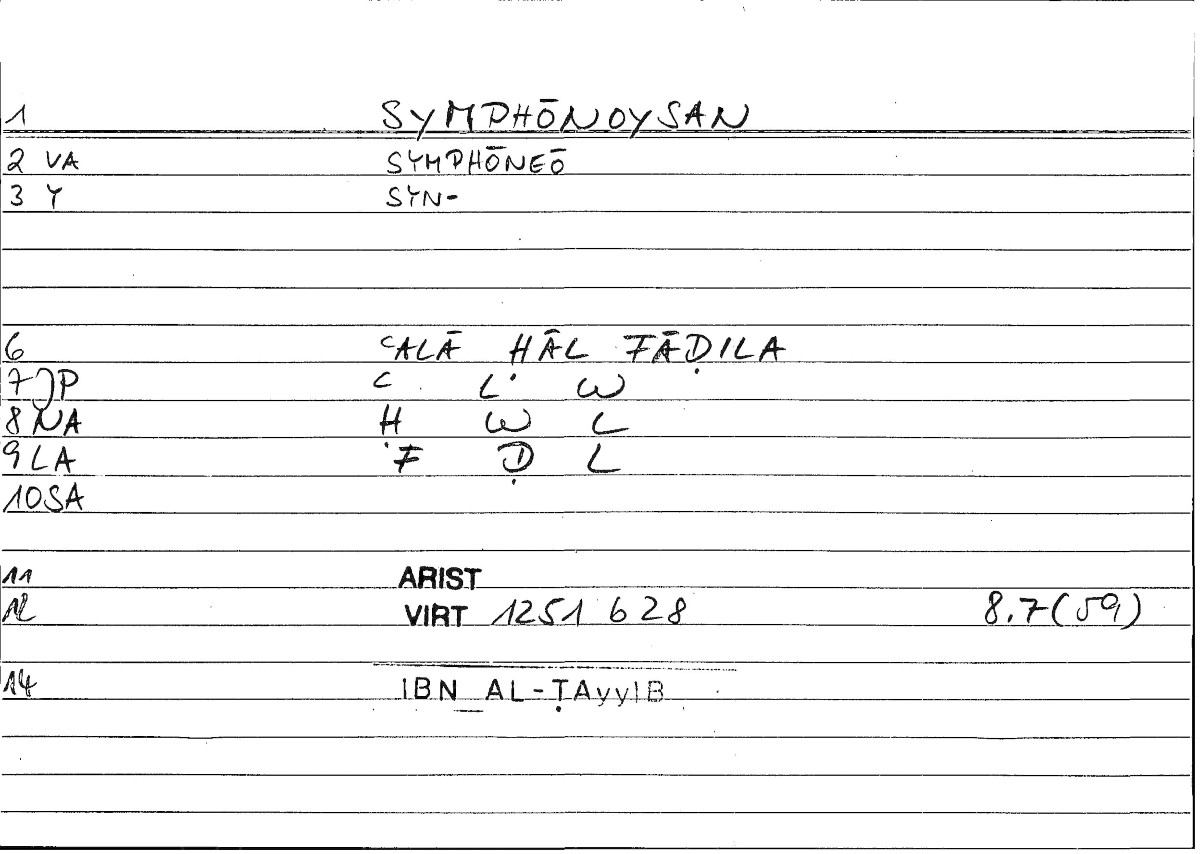 1 SYMPHŌNOYSAN
2 VA SYMPHŌNEŌ
3 Y SYN-
6 ʿALĀ ḤĀL FĀḌILA
7 JP ʿ L W
8 NA Ḥ W L
9 LA F Ḍ L
10 SA
11 ARIST
12 VIRT 1251 b 28 8.7(59)
14 IBN AL-ṬAyyIB